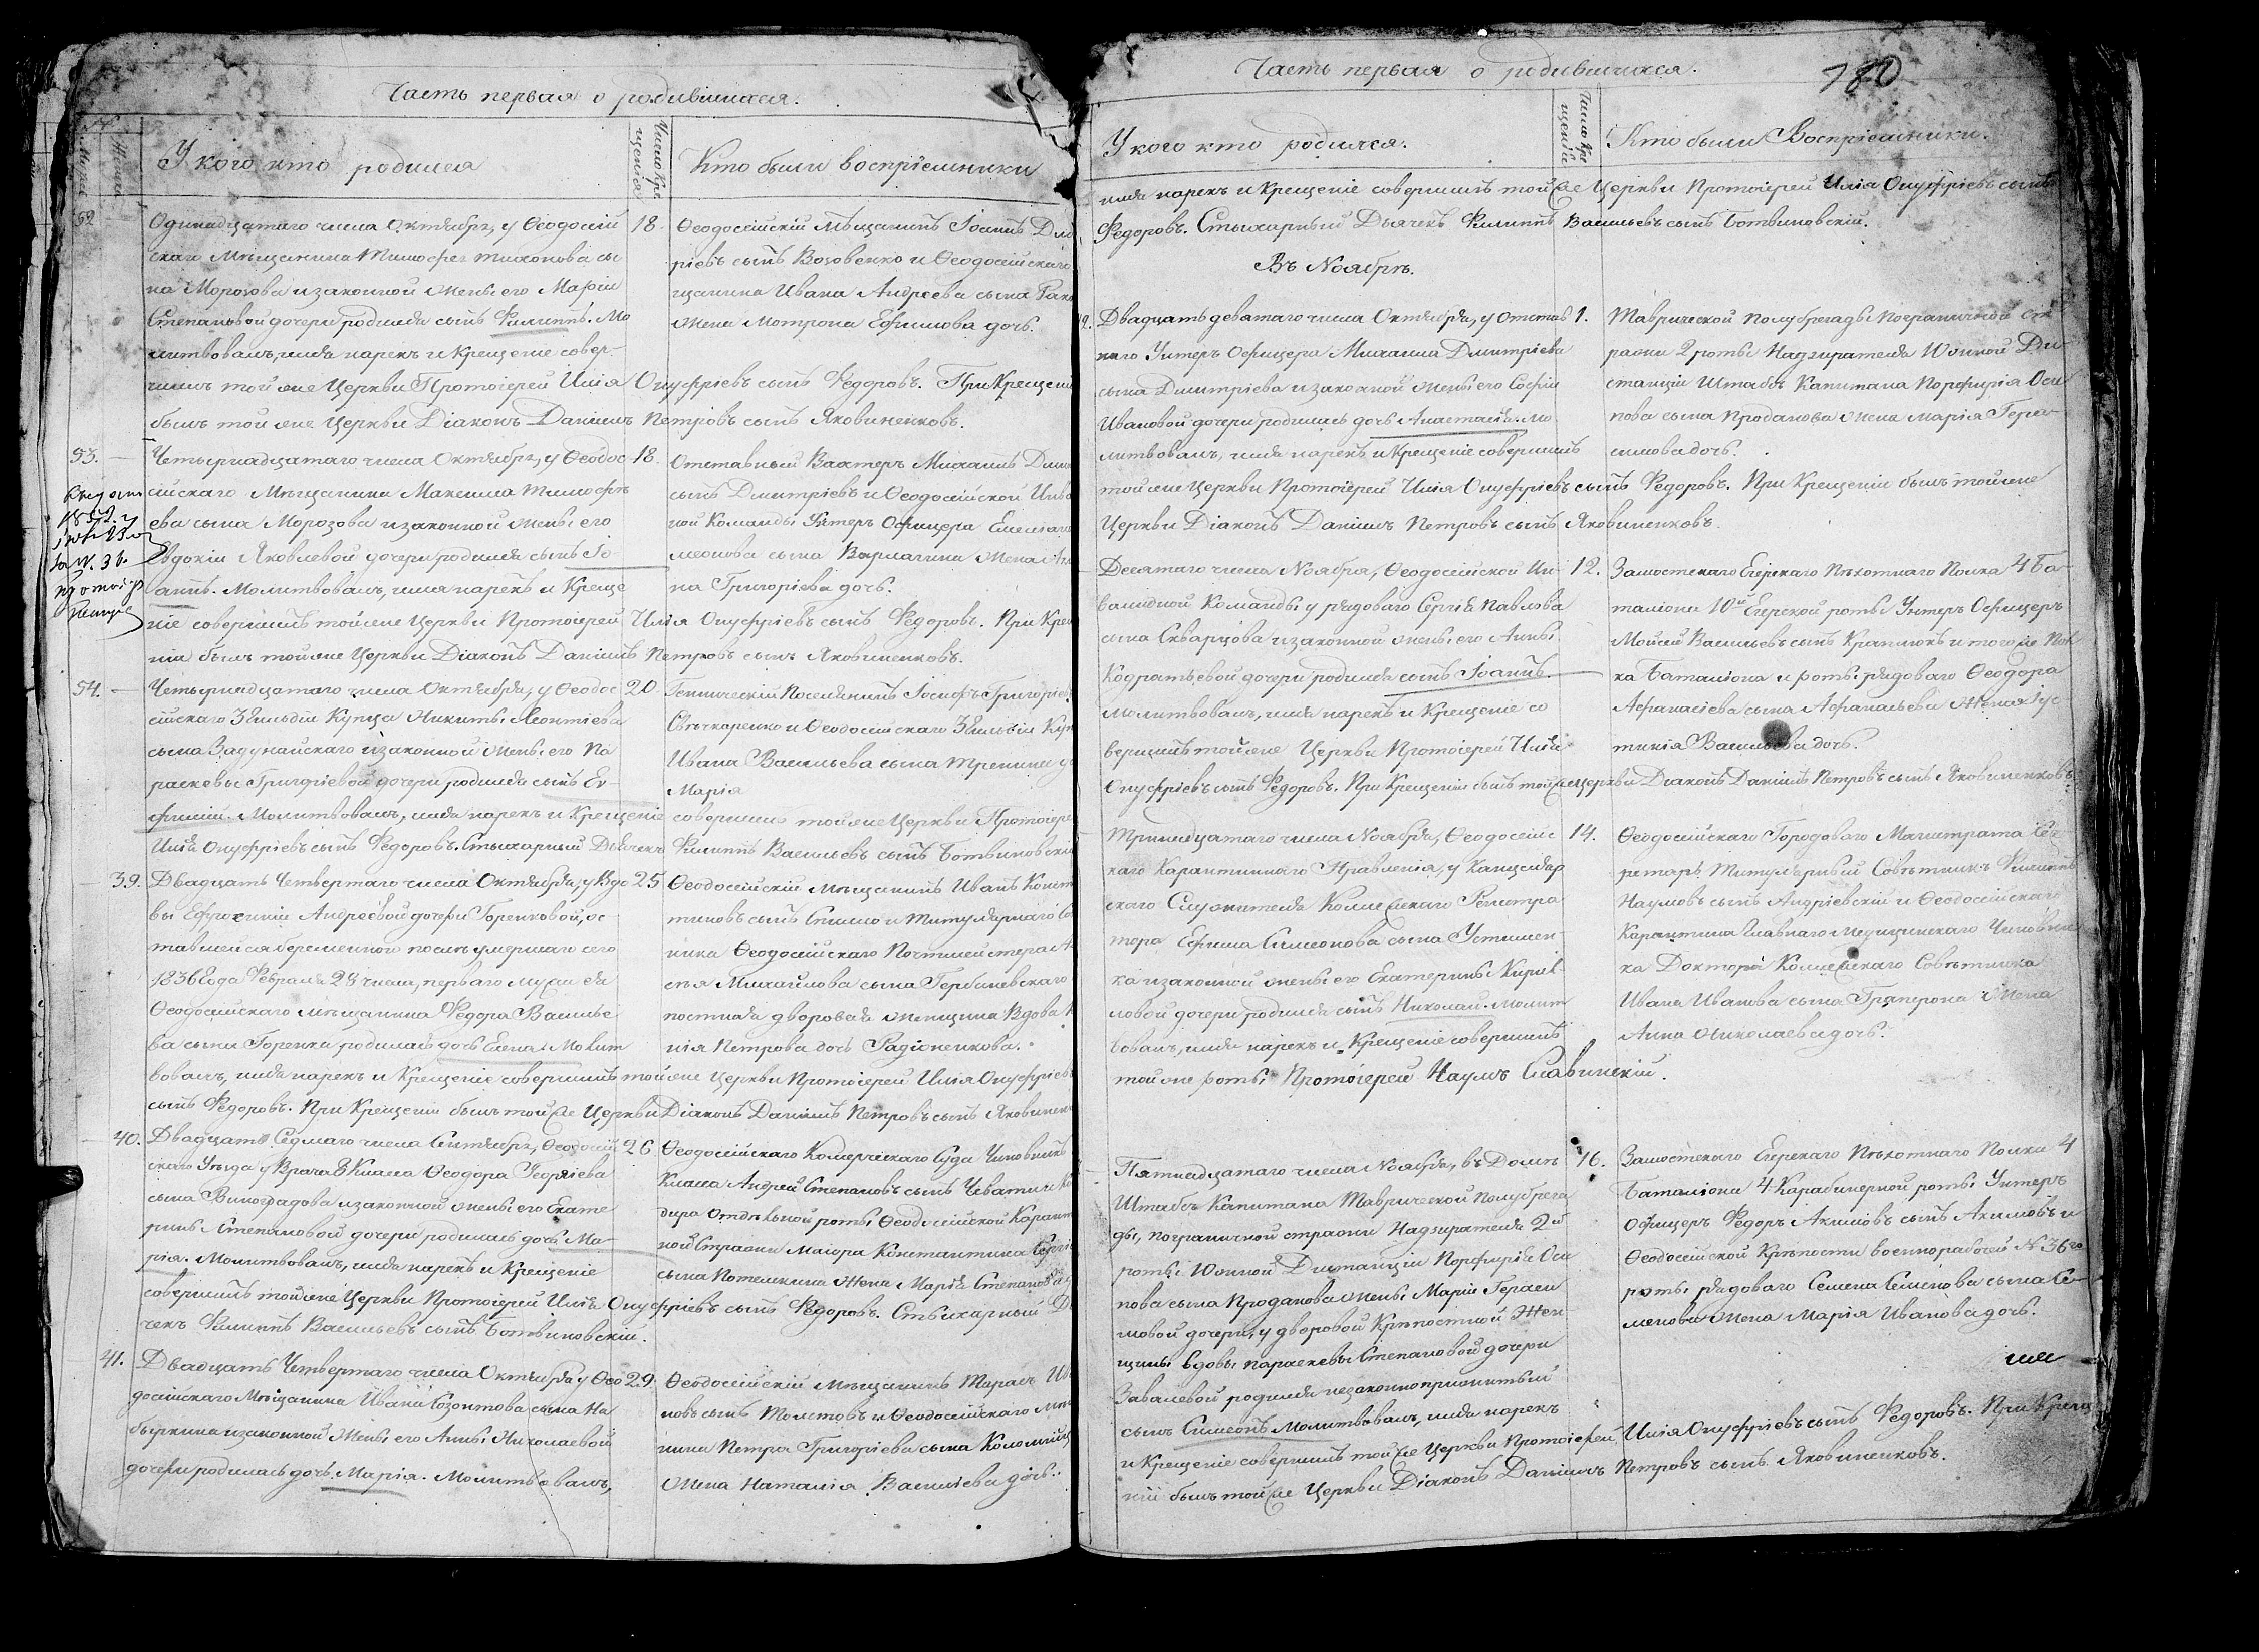 Часть первая о родившихся.
У кого кто родился
Число Кре
щенія
Кто были воспріемники
52
Одинадцатаго числа Октября, у Ѳеодосій
скаго Мѣщанина Тимофея Тихонова сы
на Морозова и законной жены его Маріи
Степановой дочери родился сынъ Филиппъ. Мо
литвовалъ, имя нарекъ и Крещеніе совер-
шилъ той же Церкви Протоіерей Илія Онуфріевъ сынъ Федоровъ. При Крещеніи
былъ той же Церкви Діаконъ Даніилъ Петровъ сынъ Яковиненковъ.
18.
Ѳеодосійскій Мѣщанинъ Іоаннъ
ріевъ сынъ Вововенко и Ѳеодосійскаго
щанина Ивана Андреева сына
жена Мотрона Ефимова дочь.
53.
Четырнадцатаго числа Октября, у Ѳеодос
сійскаго Мѣщанина Максима Тимофѣ
ева сына Морозова и законной жены его
Евдокіи Яковлевой дочери родился сынъ Іо-
аннъ. Молитвовалъ, имя нарекъ и Креще
ніе совершилъ той же Церкви Протоіерей Илія Онуфріевъ сынъ Федоровъ. При Кре
ніи былъ той же Церкви Діаконъ Даніилъ Петровъ сынъ Яковиненковъ.
18.
Отставный Вахтеръ Михаилъ
сынъ Дмитріевъ и Ѳеодосійской Инва
ной Команды Унтеръ Офицера
меонова сына жена
на Григоріева дочь.
54.
Четырнадцатаго числа Октября, у Ѳеодос
сійскаго 3 Гильдіи Купца Никиты Леонтіева
сына Задунайскаго и законной жены его Па
раскевы Григоріевой дочери родился сынъ Ев-
фимій. Молитвовалъ, имя нарекъ и Крещеніе совершилъ той же Церкви Протоіере
Илія Онуфріевъ сынъ Федоровъ. Стихарный Дьячекъ Филиппъ Васильевъ сынъ Ботвиновскій
20.
Геническій Поселянинъ Іосифъ Григорьев
Свѣчкаренко и Ѳеодосійскаго 3 Гильдіи Куп
Ивана Васильева сына
Марія
39.
Двадцать Четвертаго числа Октября, у Вдо
вы Ефросиніи Андреевой дочери Горенковой, ос
тавшейся беременной послѣ умершаго сего
1836 Года Февраля 28 числа, перваго мужа ея
Ѳеодосійскаго мѣщанина Федора Василье
ва сына Горенка родилась дочь Елена. Молит
вовалъ, имя нарекъ и Крещеніе совершилъ той же Церкви Протоіерей Илія Онуфріевъ
сынъ Федоровъ. При Крещеніи былъ той же Церкви Діаконъ Даніилъ Петровъ сынъ Яковиненк
25
Ѳеодосійскій мѣщанинъ Иванъ Конст
тиновъ сынъ и Титулярнаго Со
ника Ѳеодосійскаго Почтмейстера
Михайлова сына
постная дворовая женщина Вдова
нія Петрова дочь Радіоненкова.
40.
Двадцать Седмаго числа Сентября, Ѳеодосій
скаго Уѣзда у Врача 8 Класса Ѳеодора Георгіева
сына Виноградова и законной жены его Екате
рины Степановой дочери родилась дочь Ма-
рія. Молитвовалъ, имя нарекъ и Крещеніе
совершилъ той же Церкви Протоіерей Илія Онуфріевъ сынъ Федоровъ. Стихарный Дь
чекъ Филиппъ Васильевъ сынъ Ботвиновскій.
26
Ѳеодосійскаго Комерческаго Суда Чиновникъ
Класса Андрей Степановъ сынъ
дира Отдѣльной роты Ѳеодосійской Карант
ной Стражи Маіора Константина
сына Потемкина жена Марія Степанова
41.
Двадцать Четвертаго числа Октября у Ѳео
досійскаго Мѣщанина Ивана Созонтова сына На
быркина и законной жены его Анны Николаевой
дочери родилась дочь Марія. Молитвовалъ,
29.
Ѳеодосійскій мѣщанинъ Тарасъ
новъ сынъ Толстовъ и Ѳеодосійскаго
нина Петра Григоріева сына
жена Наталія Василіева дочь.
Часть первая о родившихся.
780
У кого кто родился.
Число Кре
щенія
Кто были Воспріемники.
имя нарекъ и Крещеніе совершилъ той же Церкви Протоіерей Илія Онуфріевъ сынъ
Федоровъ. Стихарный Дьячекъ Филиппъ Васильевъ сынъ Ботвиновскій.
Въ Ноябрѣ.
Двадцать девятаго числа Октября, у отстав
наго Унтеръ Офицера Михаила Дмитріева
сына Дмитріева и законной жены его Софіи
Ивановой дочери родилась дочь Анастасія. Мо
литвовалъ, имя нарекъ и Крещеніе совершилъ
той же Церкви Протоіерей Илія Онуфріевъ сынъ Федоровъ. При Крещеніи былъ той же
Церкви Діаконъ Даніилъ Петровъ сынъ Яковиненковъ.
1.
Таврической Полубригады Пограничной ст
ражи 2 роты Надзирателя Южной Ди
станціи Штабсъ Капитана Порфирія Оси
пова сына Проданова жена Марія Гера-
симова дочь.
Десятаго числа Ноября, Ѳеодосійской Ин
валидной Команды у рядоваго Сергія Павлова
сына Скварцова и законной жены его Анны
Кодратьевой дочери родился сынъ Іоаннъ.
Молитвовалъ, имя нарекъ и Крещеніе со
вершилъ той же Церкви Протоіерей Илія
Онуфріевъ сынъ Федоровъ. При Крещеніи былъ той же Церкви Діаконъ Даніилъ Петровъ сынъ Яковиненковъ
12.
Замостскаго Егерскаго Пѣхотнаго Полка 4 Ба
таліона 10й Егерской роты Унтеръ Офицеръ
Мойсей Васильевъ сынъ и того же Пол
ка Баталіона и роты рядоваго Ѳеодора
Афанасіева сына Афанасьева жена Іус
тинія Васильева дочь.
Тринадцатаго числа Ноября, Ѳеодосійс
каго Карантиннаго Правленія, у Канцеляр
скаго Служителя Коллежскаго Регистра
тора Ефима Симеонова сына Устимен
ка и законной жены его Екатерины Кирил
ловой дочери родился сынъ Николай. Молит
вовалъ, имя нарекъ и Крещеніе совершилъ
той же роты Протоіерей Наумъ Славинскій.
14.
Ѳеодосійскаго Городоваго Магистрата Сек
ретарь Титулярный Совѣтникъ Филиппъ
Наумовъ сынъ Андріевскій и Ѳеодосійскаго
Карантина Главнаго Медицинскаго Чиновни
ка Доктора Коллежскаго Совѣтника
Ивана Иванова сына Граперона жена
Анна Николаева дочь.
Пятнадцатаго числа Ноября, въ Домѣ
Штабсъ Капитана Таврической Полубрига
ды, пограничной стражи Надзирателя 2й
роты Южной Дистанціи Порфирія Оси
пова сына Проданова жены Маріи Гераси
мовой дочери, у дворовой Крѣпостной Жен
щины вдовы Параскевы Степановой дочери
Завалевой родился незаконноприжитый
сынъ Симеонъ Молитвовалъ, имя нарекъ
и Крещеніе совершилъ той же Церкви Протоіерей Илія Онуфріевъ сынъ Федоровъ. При Креще
ніи былъ той же Церкви Діаконъ Даніилъ Петровъ сынъ Яковиненковъ.
16.
Замостскаго Егерскаго Пѣхотнаго Полка 4
Баталіона 4 Карабинерной роты Унтеръ
Офицеръ Федоръ Акимовъ сынъ Акимовъ и
Ѳеодосійской Крѣпости военнорабочей № 36го
роты рядоваго Семена Семенова сына Се-
менова жена Марія Иванова дочь.